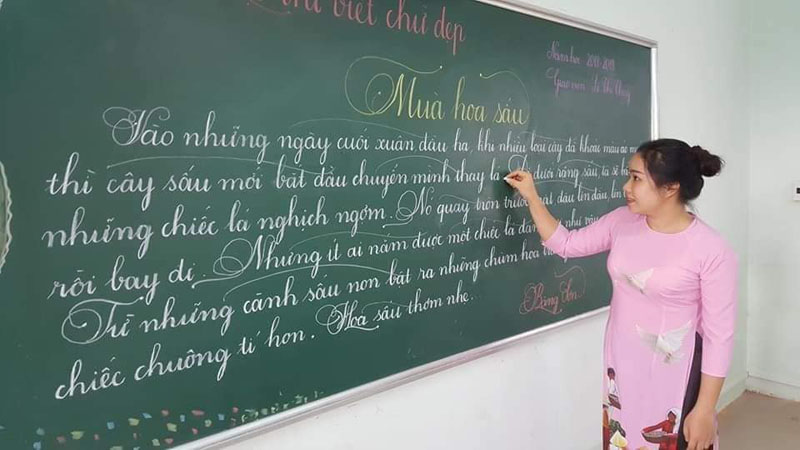 Thi viết chữ đẹp
Năm học 2018-2019
Giáo viên
Mùa hoa sấu
Vào những ngày cuối xuân đầu hạ, khi nhiều loài cây đã khoác màu áo
thì cây sấu mới bắt đầu chuyển mình thay lá. dưới rặng sấu, ta sẽ
những chiếc lá nghịch ngợm. Nó quay tròn trước mặt, đậu lên đầu, lên
rồi bay đi. Nhưng ít ai nắm được một chiếc lá đang như vậy
Từ những cành sấu non bật ra những chùm hoa
chiếc chuông tí hon. Hoa sấu thơm nhẹ.
Băng Sơn